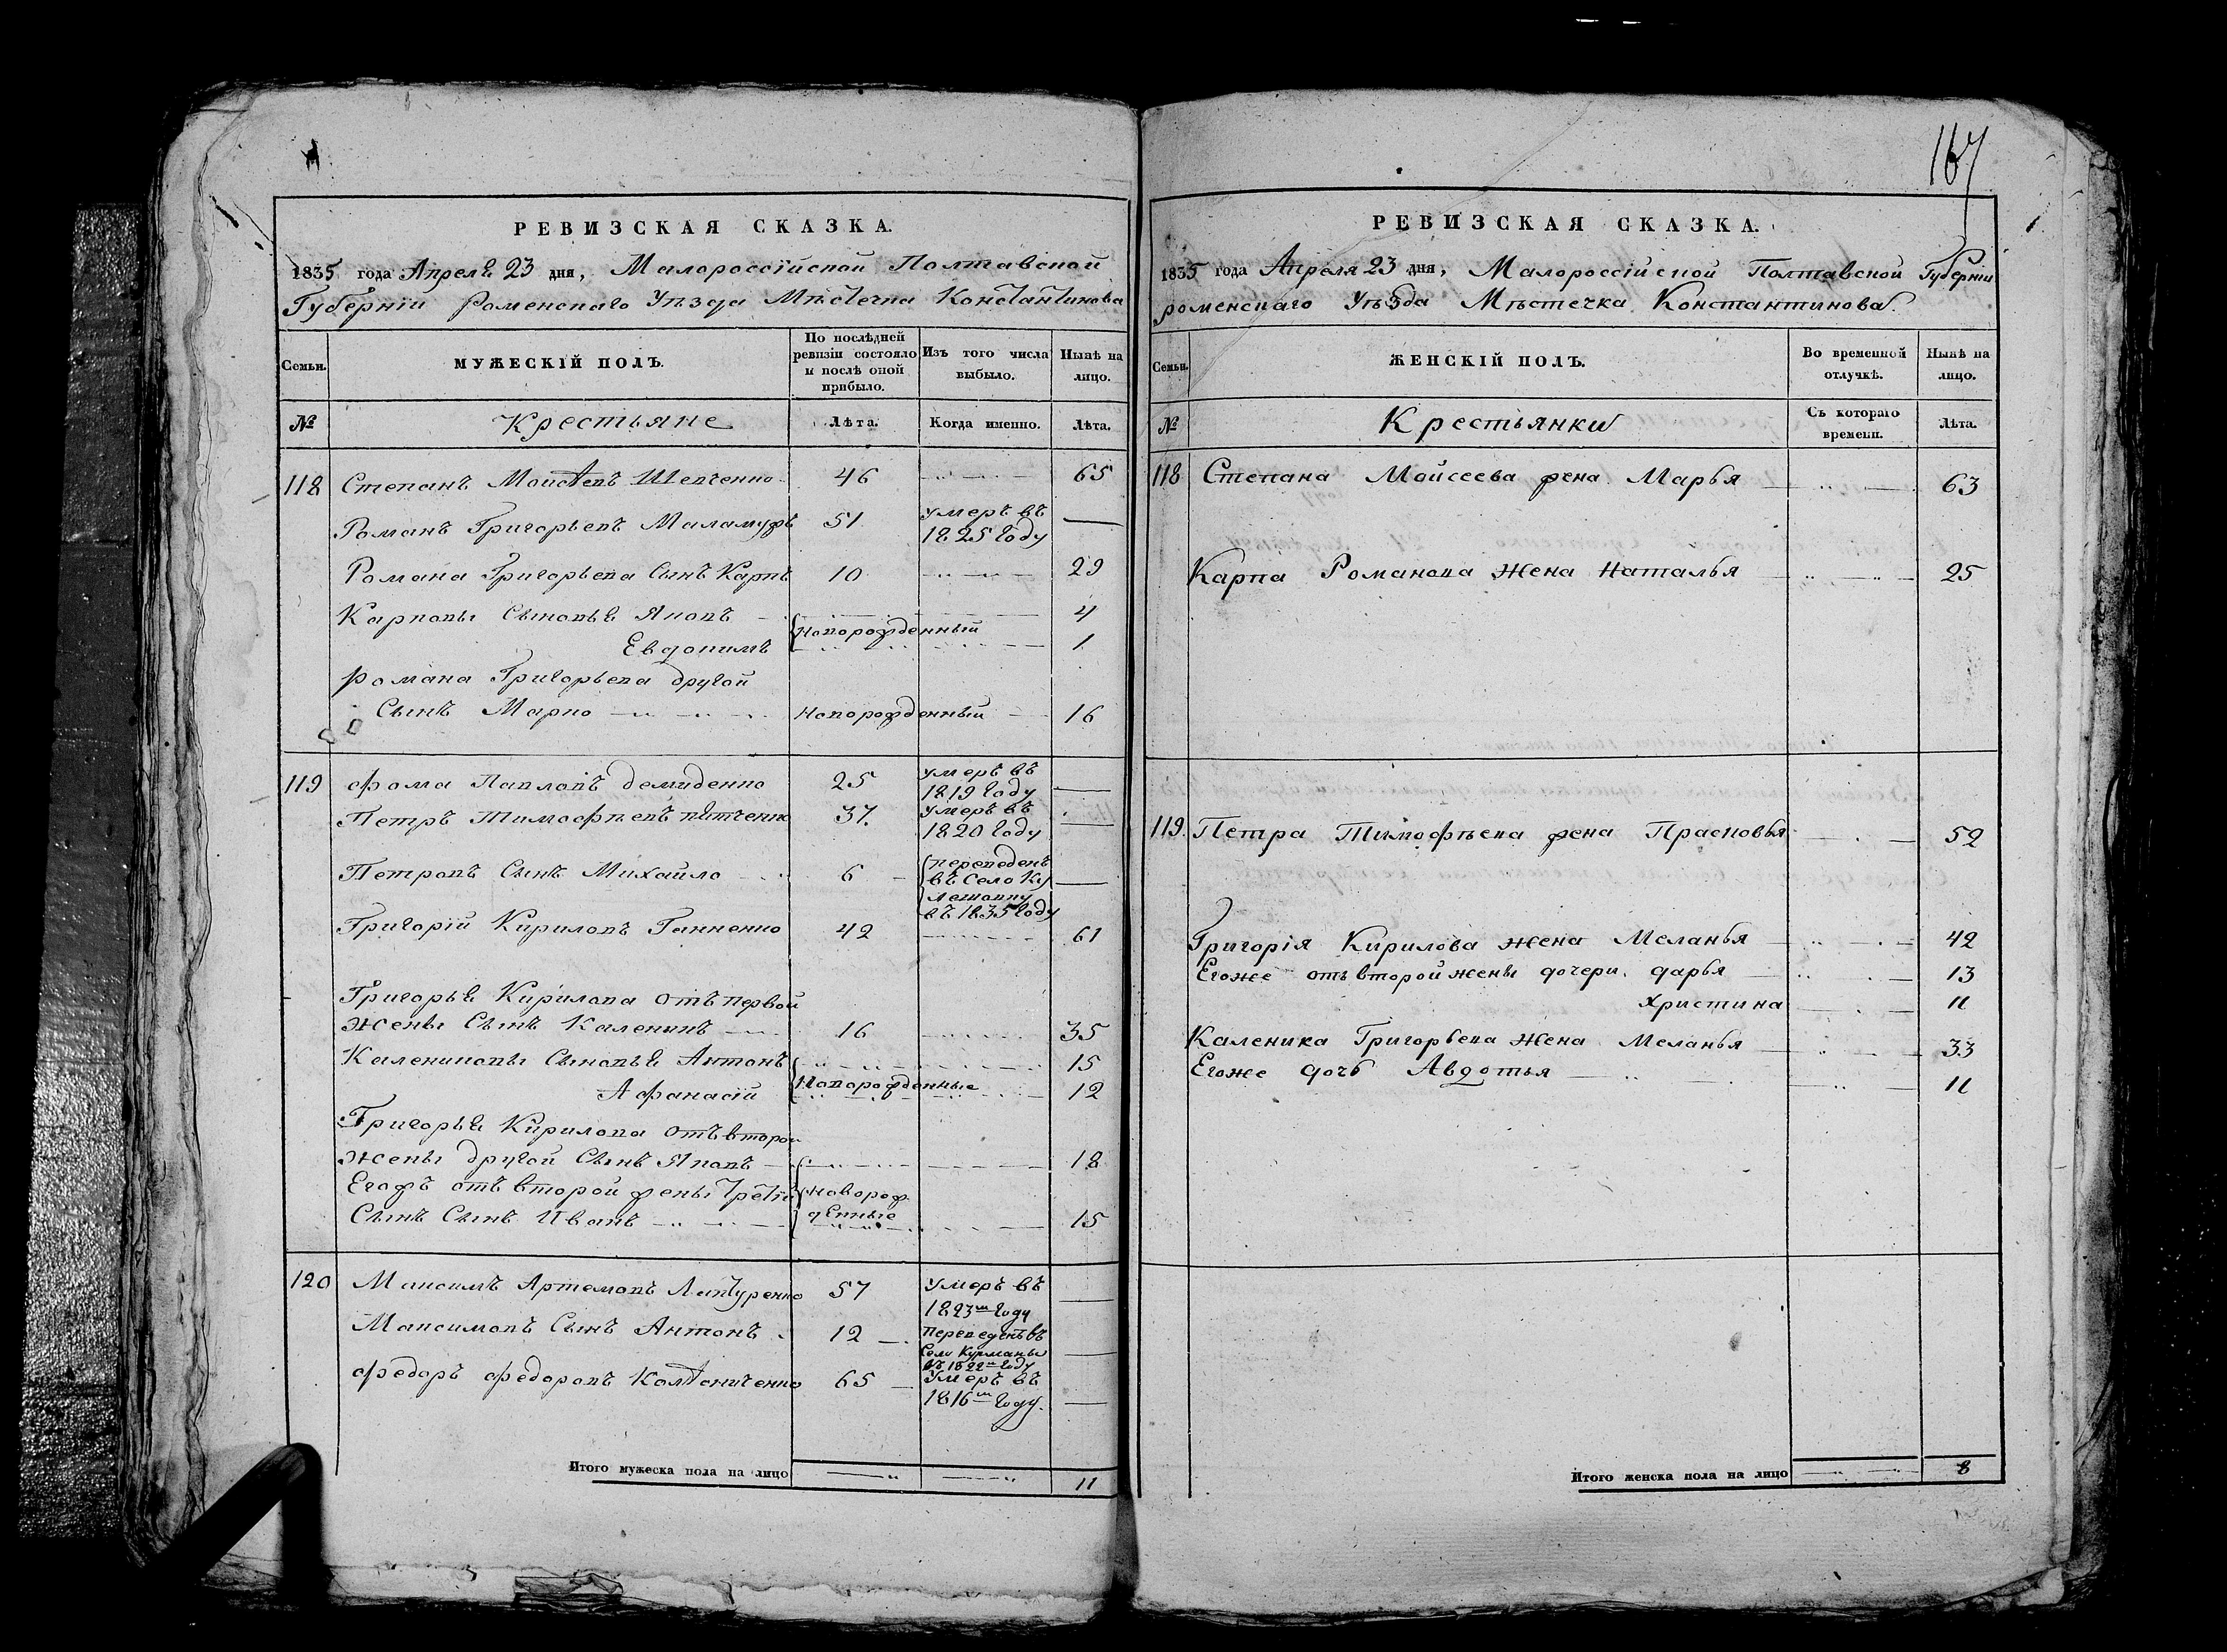 167
РЕВИЗСКАЯ СКАЗКА.
1835 года Апреля 23 дня, Малороссійской Полтавской
Губерніи Роменскаго Уѣзда Мѣстечка Константинова
Семьи.
МУЖЕСКІЙ ПОЛЪ.
По послѣдней ревизіи состояло и послѣ оной прибыло.
Изъ того числа выбыло.
Нынѣ на лицо.
№
Крестьяне
Лѣта.
Когда именно.
Лѣта.
118 Степанъ Моисѣевъ Шевченко 46 65
Романъ Григорьевъ 51 умеръ въ 1825 году
Романа Григорьева Сынъ Карпъ 10 29
Карповы Сыновьѣ Яковъ 4
новорожденный
Евдокимъ 1
Романа Григорьева другой
Сынъ Марко новорожденный 16
119 Фома Павловъ Демиденко 25 умеръ въ 1819 году
Петръ Тимофѣевъ 37. умеръ въ 1820 году
Петровъ Сынъ Михайло 6 переведенъ въ Село Ку
въ 1835 году
Григорій Кириловъ Ганненко 42 61
Григорьѣ Кирилова отъ первой
жены Сынъ Каленикъ 16 35
Калениковы Сыновьѣ Антонъ 15
новорожденные
Афанасій 12
Григорьѣ Кирилова отъ второй
жены другой Сынъ Яковъ 18
Егожъ отъ второй жены трети новорож
Сынъ Сынъ Иванъ денные 15
120 Максимъ Артемовъ 57 Умеръ въ 1823м году
Максимовъ Сынъ Антонъ 12 переведенъ въ Село Курманы въ 1822м году
Федоръ Федоровъ 65 Умеръ въ 1816м году.
Итого мужеска пола на лицо 11
РЕВИЗСКАЯ СКАЗКА.
1835 года Апреля 23 дня, Малороссійской Полтавской Губерніи
роменскаго Уѣзда Мѣстечка Константинова.
Семьи.
ЖЕНСКІЙ ПОЛЪ.
Во временной отлучкѣ.
Нынѣ на лицо.
№
Крестьянки
Съ котораго времени.
Лѣта.
118 Степана Мойсеева жена Марья 63
Карпа Романова жена Наталья 25
119. Петра Тимофѣева жена Прасковья 52
Григорія Кирилова жена Меланья 42
Егоже отъ второй жены дочери дарья 13
Христина 11
Каленика Григорьева жена Меланья 33
Егоже дочь Авдотья 11
Итого женска пола на лицо 8